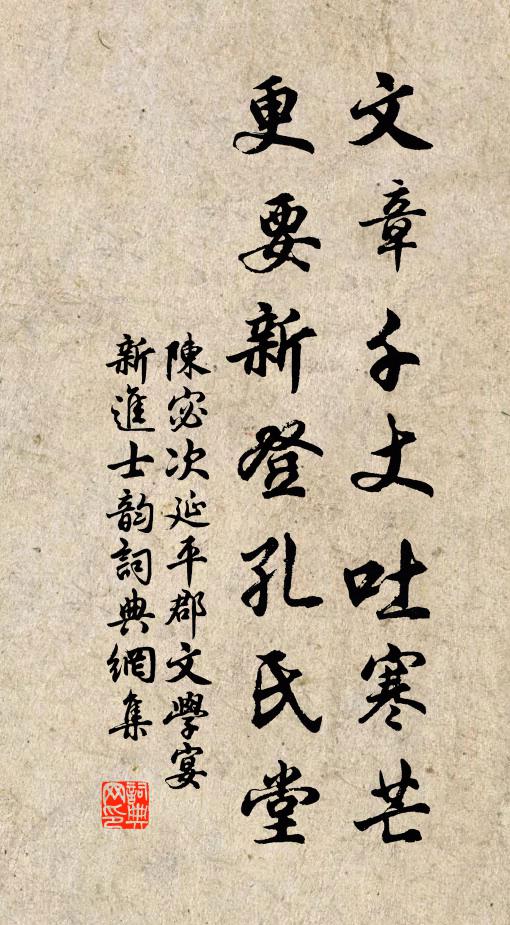 文章千丈吐寒芒
更要新登孔氏堂
陳宓次延平郡文學宴
新進士韵詞典網集
詞典
网印